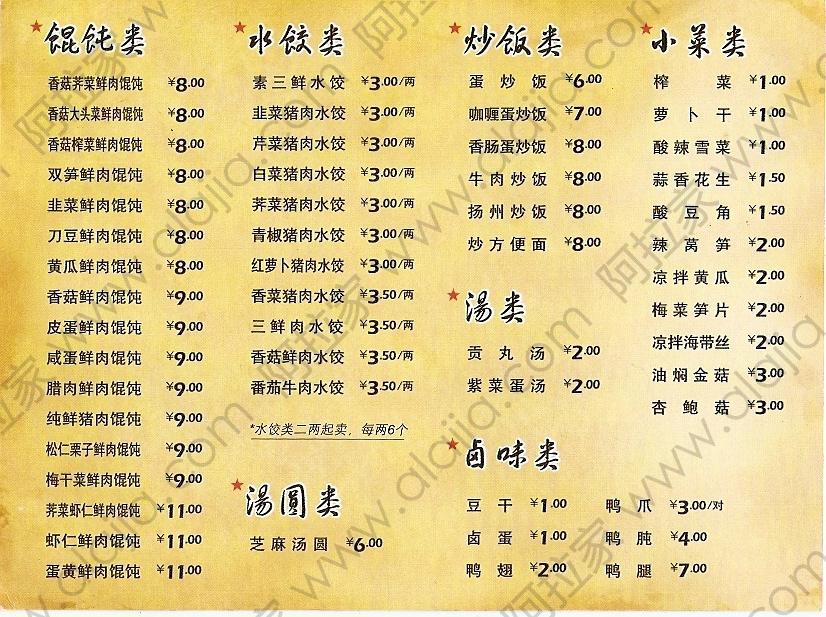 馄饨类
香菇荠菜鲜肉馄饨 ¥8.00
香菇大头菜鲜肉馄饨 ¥8.00
香菇榨菜鲜肉馄饨 ¥8.00
双笋鲜肉馄饨 ¥8.00
韭菜鲜肉馄饨 ¥8.00
刀豆鲜肉馄饨 ¥8.00
黄瓜鲜肉馄饨 ¥8.00
香菇鲜肉馄饨 ¥9.00
皮蛋鲜肉馄饨 ¥9.00
咸蛋鲜肉馄饨 ¥9.00
腊肉鲜肉馄饨 ¥9.00
纯鲜猪肉馄饨 ¥9.00
松仁栗子鲜肉馄饨 ¥9.00
梅干菜鲜肉馄饨 ¥9.00
荠菜虾仁鲜肉馄饨 ¥11.00
虾仁鲜肉馄饨 ¥11.00
蛋黄鲜肉馄饨 ¥11.00
水饺类
素三鲜水饺 ¥3.00/两
韭菜猪肉水饺 ¥3.00/两
芹菜猪肉水饺 ¥3.00/两
白菜猪肉水饺 ¥3.00/两
荠菜猪肉水饺 ¥3.00/两
青椒猪肉水饺 ¥3.00/两
红萝卜猪肉水饺 ¥3.00/两
香菜猪肉水饺 ¥3.50/两
三鲜肉水饺 ¥3.50/两
香菇鲜肉水饺 ¥3.50/两
番茄牛肉水饺 ¥3.50/两
*水饺类二两起卖，每两6个
湯圆类
芝麻汤圆 ¥6.00
炒饭类
蛋炒饭 ¥6.00
咖喱蛋炒饭 ¥7.00
香肠蛋炒饭 ¥8.00
牛肉炒饭 ¥8.00
扬州炒饭 ¥8.00
炒方便面 ¥8.00
湯类
贡丸汤 ¥2.00
紫菜蛋汤 ¥2.00
小菜类
榨菜 ¥1.00
萝卜干 ¥1.00
酸辣雪菜 ¥1.00
蒜香花生 ¥1.50
酸豆角 ¥1.50
辣莴笋 ¥2.00
凉拌黄瓜 ¥2.00
梅菜笋片 ¥2.00
凉拌海带丝 ¥2.00
油焖金菇 ¥3.00
杏鲍菇 ¥3.00
卤味类
豆干 ¥1.00 鸭爪 ¥3.00/对
卤蛋 ¥1.00 鸭肫 ¥4.00
鸭翅 ¥2.00 鸭腿 ¥7.00
阿拉家 www.alajia.com